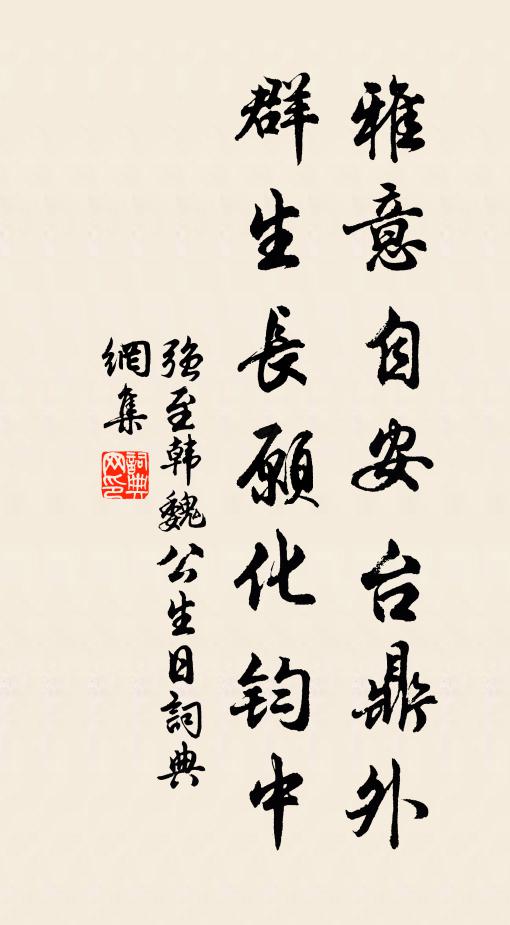 雅意自安台鼎外
群生長願化鈞中
強至韩魏公生日詞典
網集
詞典
网印